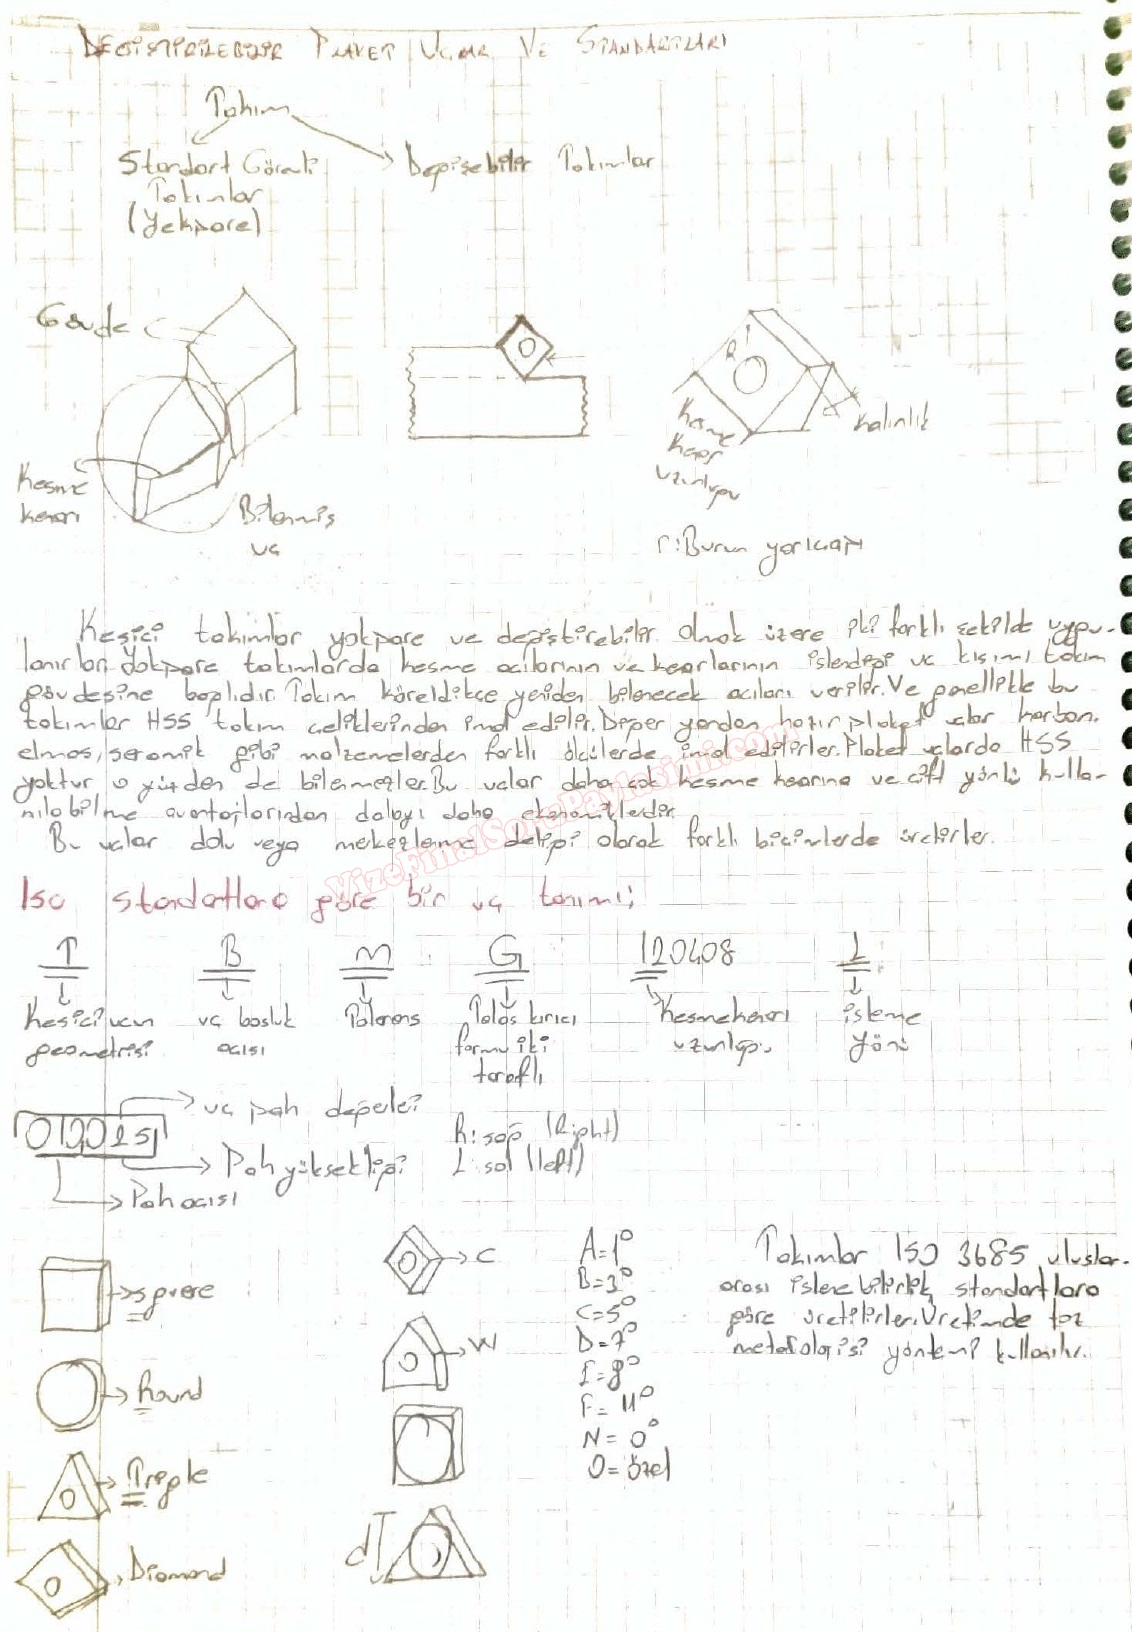 DEĞİŞTİRİLEBİLİR PLAKET UÇLAR VE STANDARTLARI
Takım
Standart Görevli
Takımlar
(Yekpare)
Değişebilir Takımlar
Gövde
Kesme
kenarı
Bilenmiş
uç
R
Kesme
kenar
uzunluğu
kalınlık
r: Burun yarıçapı
Kesici takımlar yekpare ve değiştirebilir olmak üzere iki farklı şekilde uygu-
lanırlar. Yekpare takımlarda kesme açılarının ve kenarlarının işlendiği uç kısımı takım
gövdesine bağlıdır. Takım köreldikçe yeniden bilenecek açıları verilir. Ve genellikle bu
takımlar HSS takım çeliklerinden imal edilir. Diğer yandan hazır plaket uçlar karbon,
elmas, seramik gibi malzemelerden farklı ölçülerde imal edilirler. Plaket uçlarda HSS
yoktur o yüzden de bilenmezler. Bu uçlar daha çok kesme kenarına ve çift yönlü kulla-
nılabilme avantajlarından dolayı daha ekonomiklerdir.
Bu uçlar dolu veya merkezleme deliği olarak farklı biçimlerde üretirler.
VizeFinalSoruPaylasimi.com
Iso standartlara göre bir uç tanımı;
T B M G 120408 L
Kesici ucun
geometrisi
uç boşluk
açısı
Tolerans
Talaş kırıcı
formu iki
taraflı
Kesme kenarı
uzunluğu
işleme
yönü
uç pah değerleri
Pah yüksekliği
Pah açısı
R: sağ (Right)
L: sol (left)
square
Round
Triple
Diamond
C
W
d
A=1°
B=3°
C=5°
D=7°
F= 11°
N= 0°
O=özel
Takımlar ISO 3685 uluslar-
arası işlenebilirlik standartlara
göre üretilirler. Üretimde toz
metalolojisi yöntemi kullanılır.